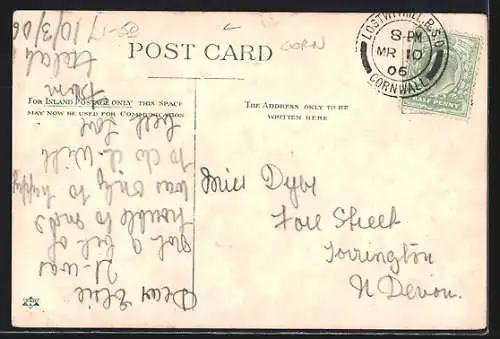 POST CARD
CORN
FOR INLAND POSTAGE ONLY THIS SPACE
MAY NOW BE USED FOR COMMUNICATION
THE ADDRESS ONLY TO BE
WRITTEN HERE
Dear Elsie
It was
not a bit of
trouble to send
was only to happy
to do it. With
best love
from
10/3/06
Miss
Fore Street
Torrington
N Devon.
LOSTWITHIEL R.S.O.
8-PM
MR 10
06
CORNWALL
HALF PENNY